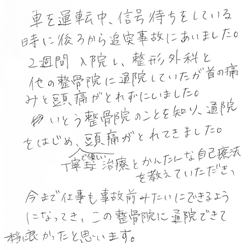 車を運転中、信号待ちをしている
時に後ろから追突事故にあいました。
2週間入院し、整形外科と
他の整骨院に通院していたが首の痛
みと頭痛がとれずにいました。
いとう整骨院のことを知り、通院
をはじめ、頭痛がとれてきました。
で優しい
丁寧 治療とかんたんな自己療法
を教えていただき、
今まで仕事も事故前みたいにできるよう
になってき、この整骨院に通院できて
本当に良かったと思います。